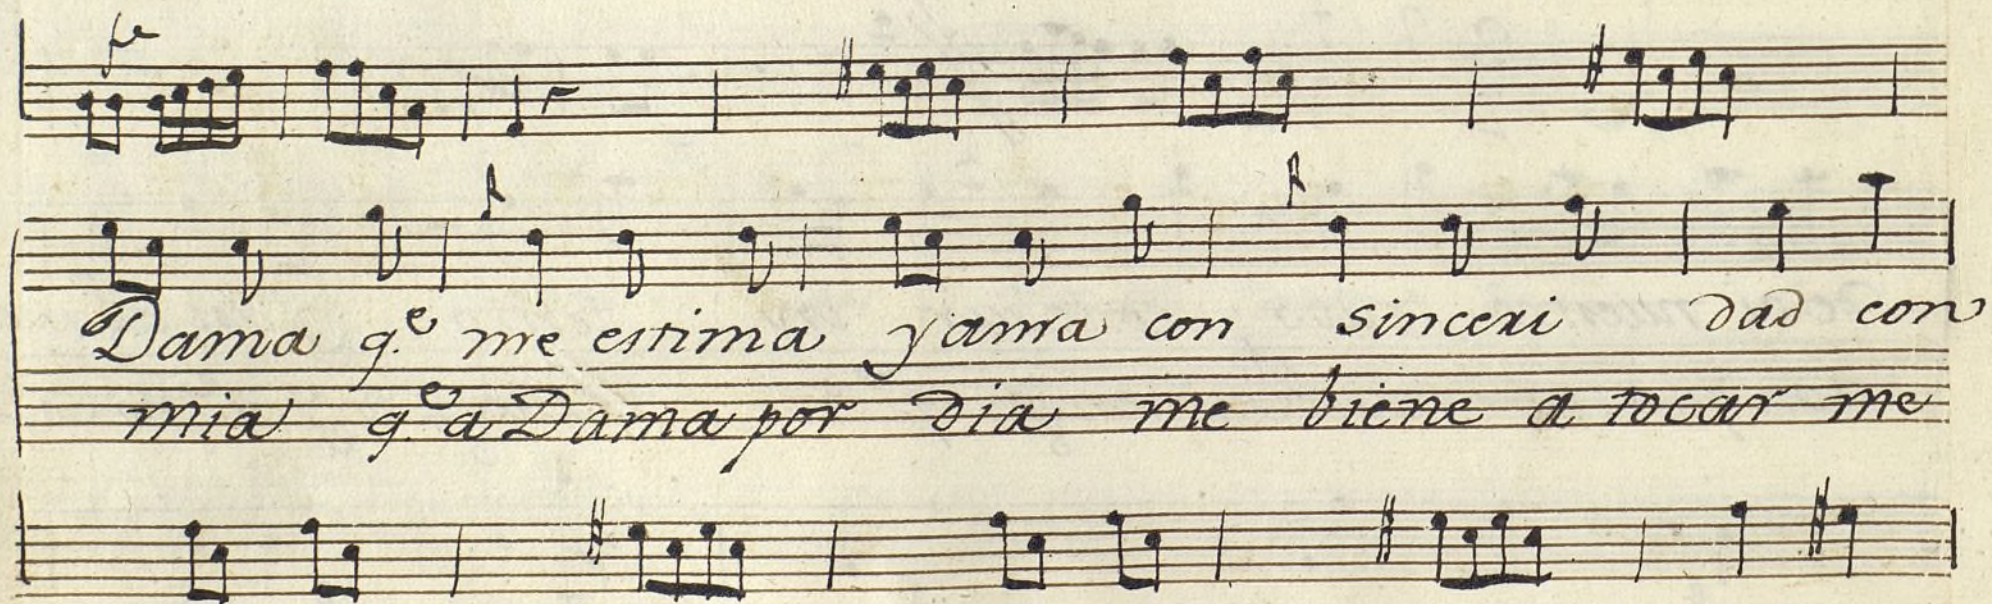 fe
Dama q.e me estima y ama con sinceri dad con
mia q.e a Dama por dia me biene a tocar me